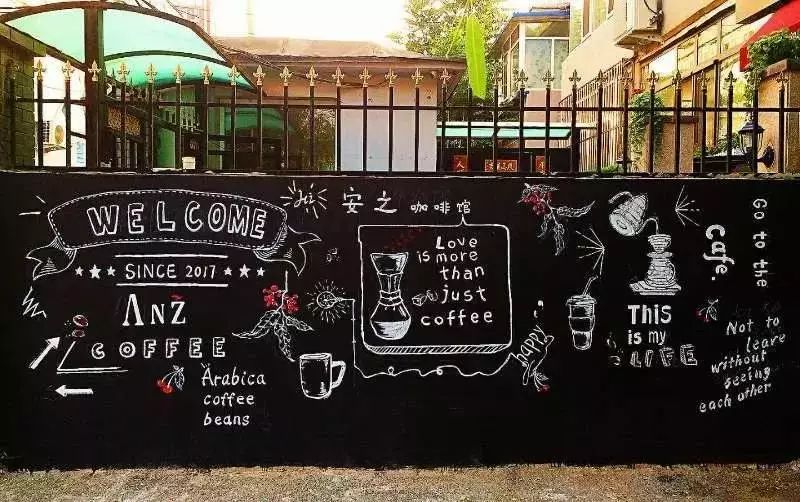 WELCOME
SINCE 2017
ANZ
COFFEE
Arabica
coffee
beans
安之咖啡馆
Love
is more
than
just
coffee
happy
THiS
is my
LIFE
Go to the
cafe.
Not to
leave
without
seeing
each other